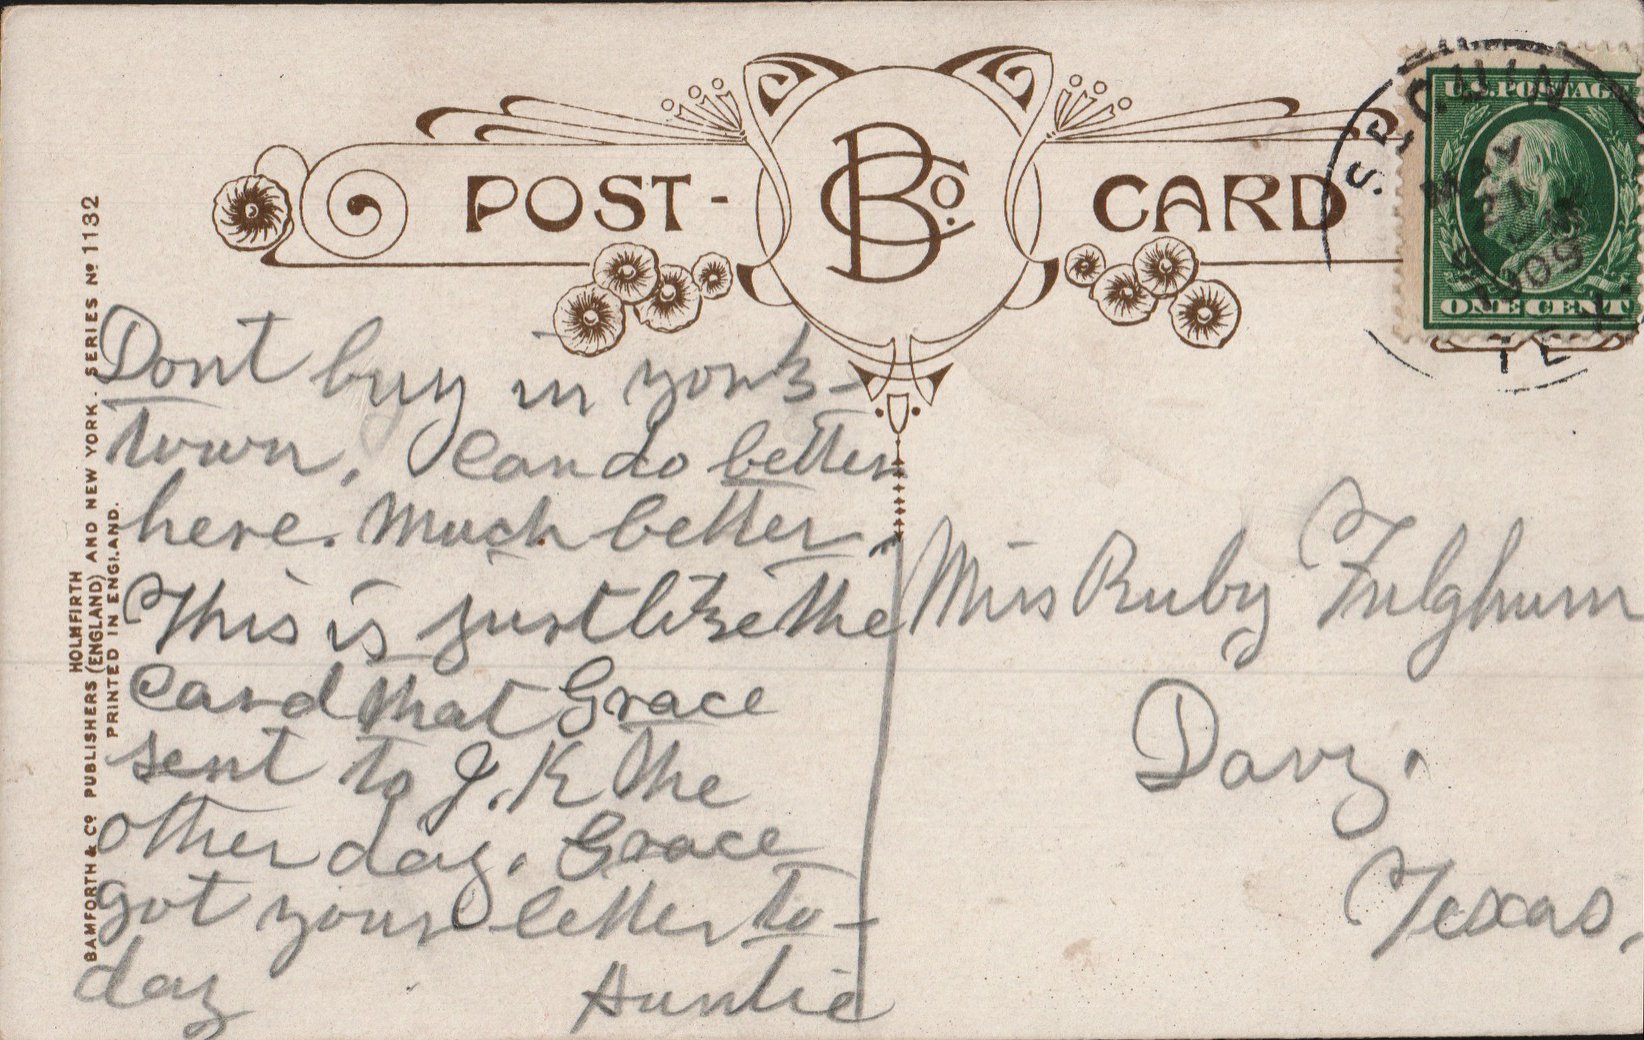 POST-CARD
BCo.
U.S. POSTAGE
ONE CENT
SEGUIN
MAY
21
1909
TEX.
BAMFORTH & Co PUBLISHERS (ENGLAND) AND NEW YORK. SERIES No 1132
HOLMFIRTH
PRINTED IN ENGLAND.
Dont buy in york-
town, Can do better
here. Much better.
This is just like the
Card that Grace
sent to J.K the
other day. Grace
got your letter to-
day
Auntie
Miss Ruby Fulghum
Davy.
Texas.